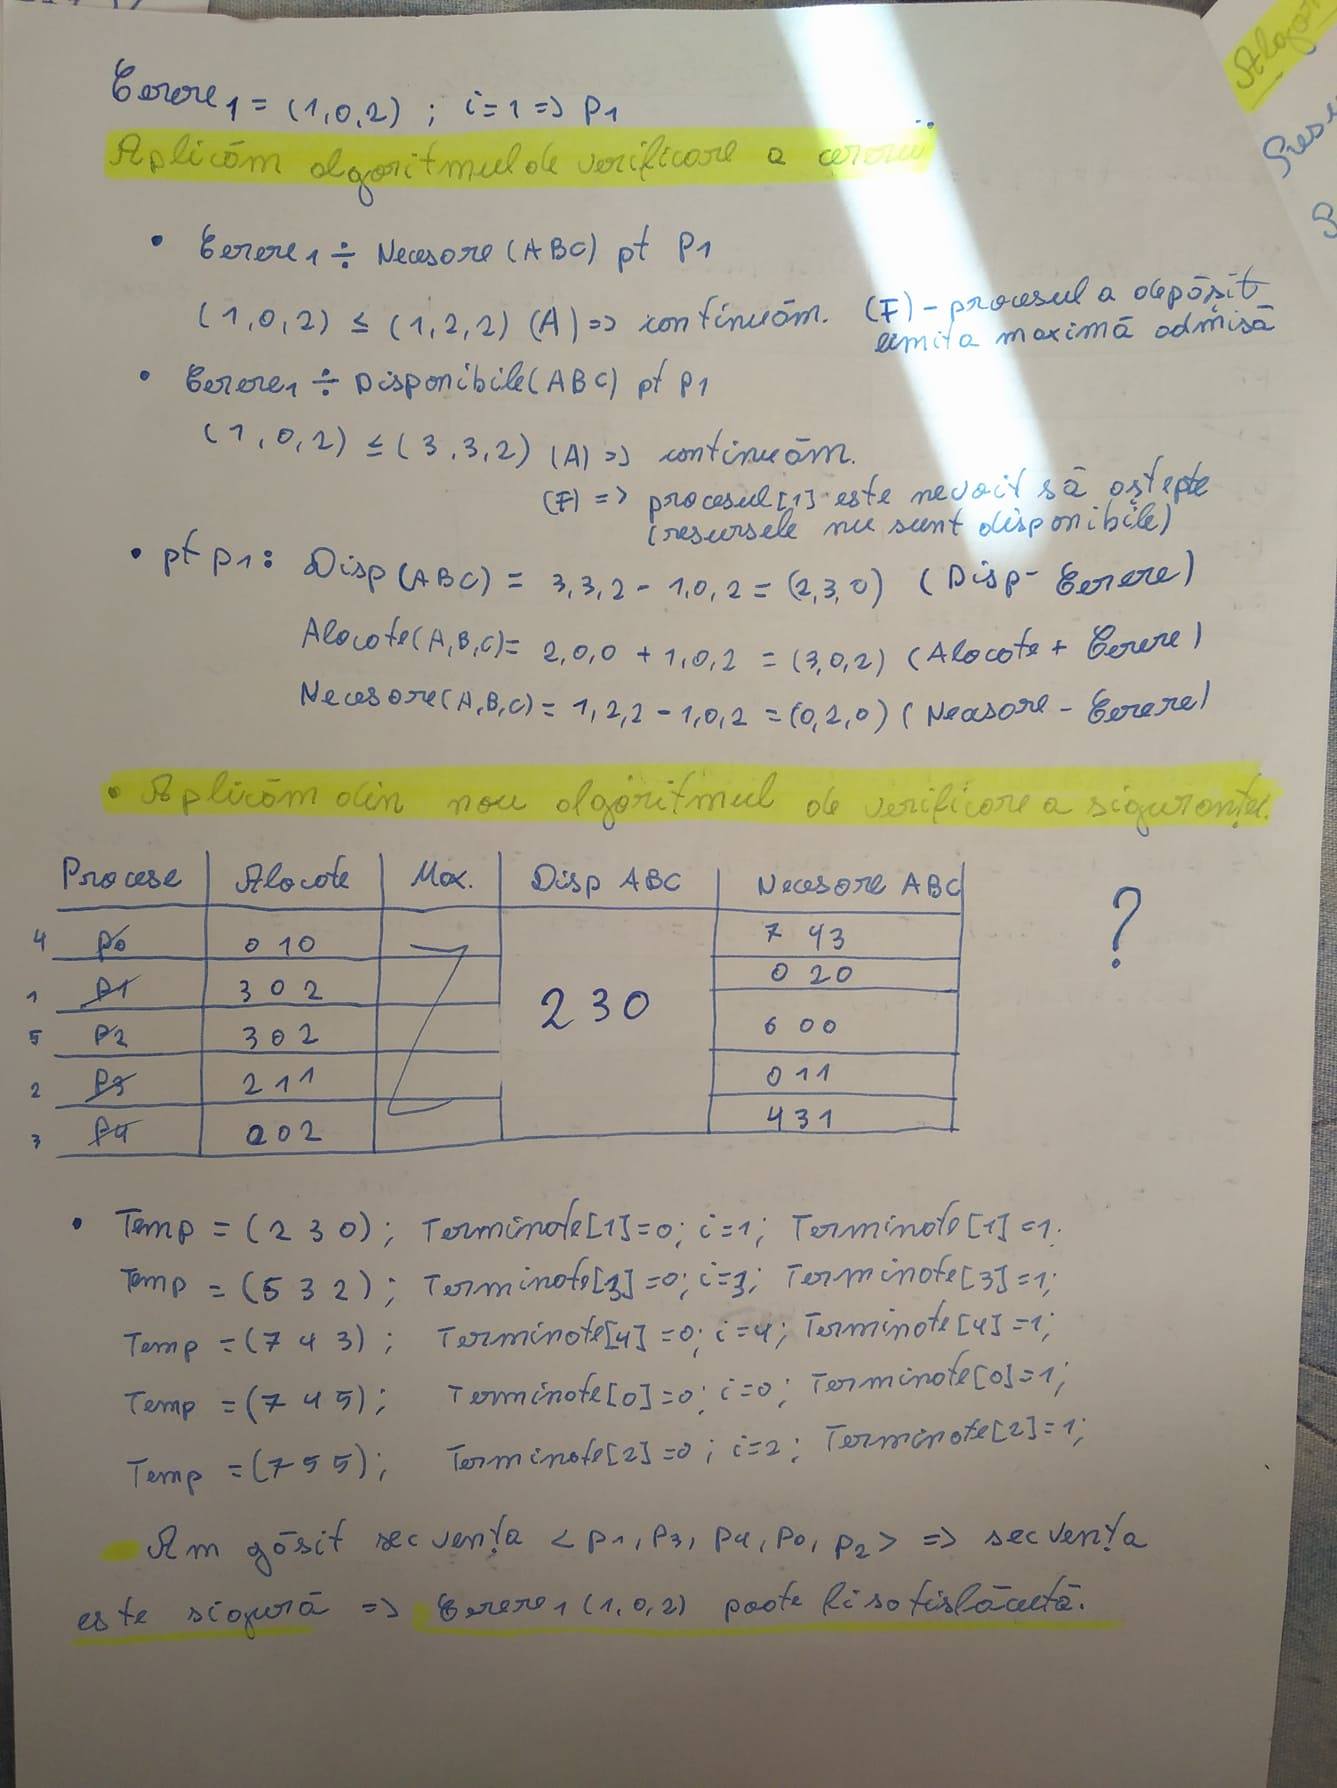 Cerere1 = (1,0,2) ; i=1 => P1
Aplicăm algoritmul de verificare a cererii
• Cerere1 ÷ Necesare (ABC) pt P1
(1,0,2) ≤ (1,2,2) (A) => continuăm. (F) - procesul a depășit
limita maximă admisă
• Cerere1 ÷ Disponibile (ABC) pt P1
(1,0,2) ≤ (3,3,2) (A) => continuăm.
(F) => procesul[1] este nevoit să aștepte
(resursele nu sunt disponibile)
• pt P1: Disp (ABC) = 3,3,2 - 1,0,2 = (2,3,0) (Disp - Cerere)
Alocate (A,B,C) = 2,0,0 + 1,0,2 = (3,0,2) (Alocate + Cerere)
Necesare (A,B,C) = 1,2,2 - 1,0,2 = (0,2,0) (Necesare - Cerere)
• Aplicăm din nou algoritmul de verificare a siguranței.
Procese Alocate Max. Disp ABC Necesare ABC
4 P0 0 1 0 7 4 3 ?
1 P1 3 0 2 2 3 0 0 2 0
5 P2 3 0 2 6 0 0
2 P3 2 1 1 0 1 1
3 P4 0 0 2 4 3 1
• Temp = (2 3 0); Terminate[1]=0; i=1; Terminate[1]=1.
Temp = (5 3 2); Terminate[3]=0; i=3; Terminate[3]=1;
Temp = (7 4 3); Terminate[4]=0; i=4; Terminate[4]=1;
Temp = (7 4 5); Terminate[0]=0; i=0; Terminate[0]=1;
Temp = (7 5 5); Terminate[2]=0; i=2; Terminate[2]=1;
Am găsit secvența < P1, P3, P4, P0, P2 > => secvența
este sigură => Cerere1 (1,0,2) poate fi satisfăcută.